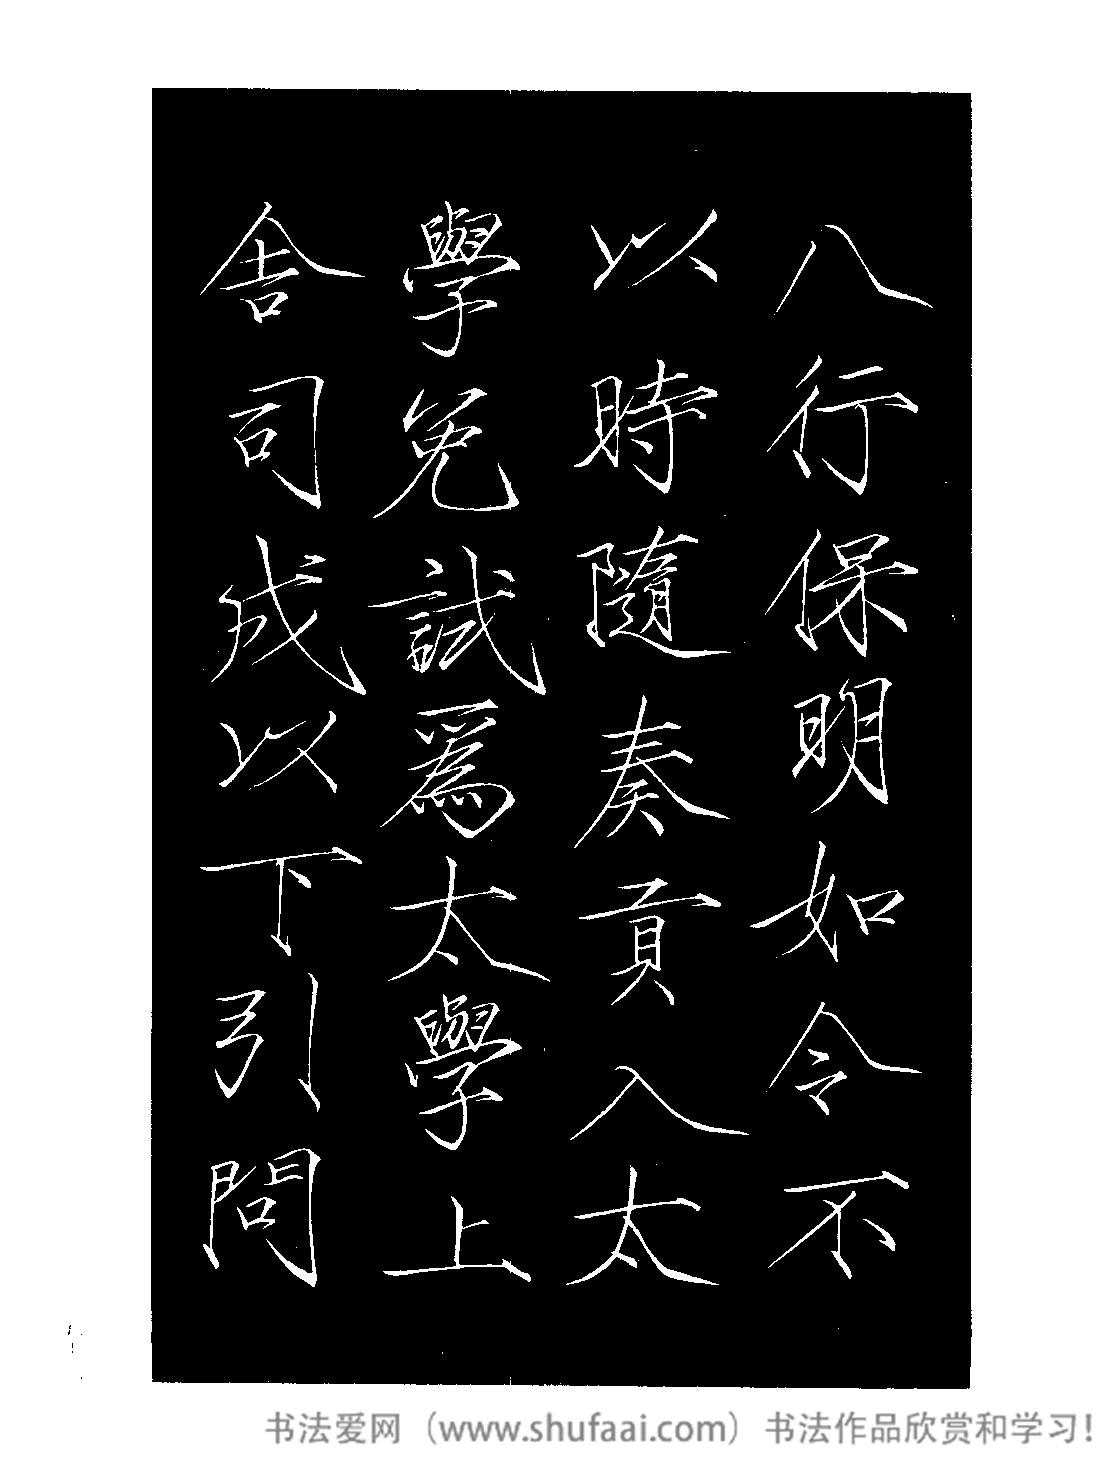 八行保明如令不
以時隨奏貢入太
學免試為太學上
舍司成以下引問
书法爱网（www.shufaai.com）书法作品欣赏和学习!